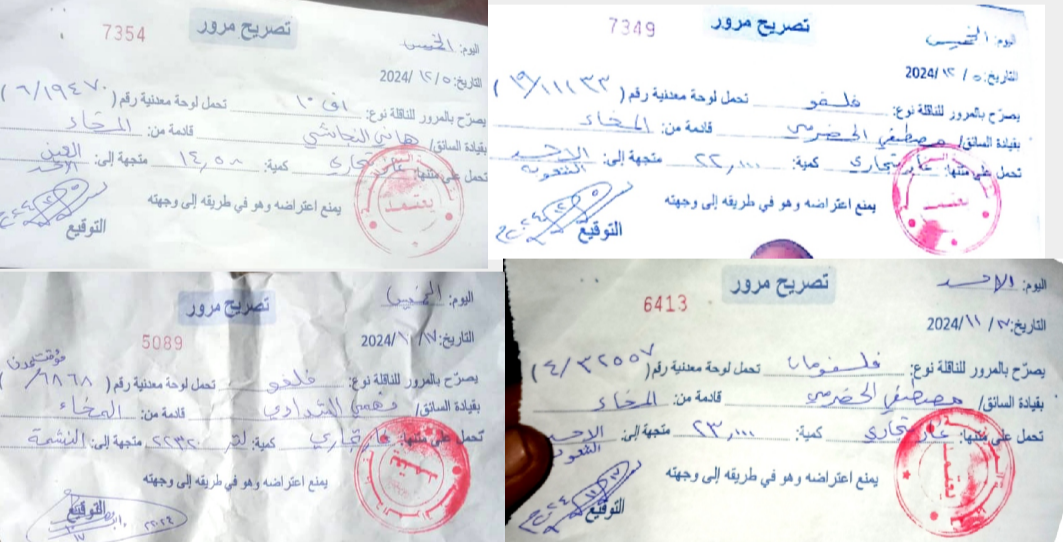 تصريح مرور
7354
اليوم: الخميس
التاريخ: ٥/ ١٢/ 2024
يصرّح بالمرور للناقلة نوع: تحمل لوحة معدنية رقم ( ٦/١٩٤٧٠ )
بقيادة السائق/ هاني النجاشي قادمة من: المخاء
تحمل على متنها: غاز تجاري كمية: ١٤,٥٨٠ متجهة إلى: العين
الاحد
يمنع اعتراضه وهو في طريقه إلى وجهته
التوقيع
يعتمد
تصريح مرور
7349
اليوم: الخميس
التاريخ: ٥ / ١٢/ 2024
يصرّح بالمرور للناقلة نوع: فلفو تحمل لوحة معدنية رقم ( ١٩/١١١٣٣ )
بقيادة السائق/ مصطفي الحضرمي قادمة من: المخاء
تحمل على متنها: غاز تجاري كمية: ٢٢,٠٠٠ متجهة إلى: الاحد
يمنع اعتراضه وهو في طريقه إلى وجهته
التوقيع
يعتمد
تصريح مرور
5089
اليوم: الخميس
التاريخ: ١٧/ ١٠/ 2024
يصرّح بالمرور للناقلة نوع: فلفو تحمل لوحة معدنية رقم ( ٦٨٦٨/ )
بقيادة السائق/ فهمي قادمة من: المخاء
تحمل على متنها: غاز تجاري كمية: لتر ٢٢٣٢٠ متجهة إلى: النشمة
يمنع اعتراضه وهو في طريقه إلى وجهته
التوقيع
تصريح مرور
6413
اليوم: الاحد
التاريخ: / ١١/ 2024
يصرّح بالمرور للناقلة نوع: تحمل لوحة معدنية رقم ( ٤/٣٢٥٥٧ )
بقيادة السائق/ مصطفي الحضرمي قادمة من: المخاء
تحمل على متنها: غاز تجاري كمية: ٢٣,٠٠٠ متجهة إلى: الاحد
يمنع اعتراضه وهو في طريقه إلى وجهته
التوقيع
يعتمد